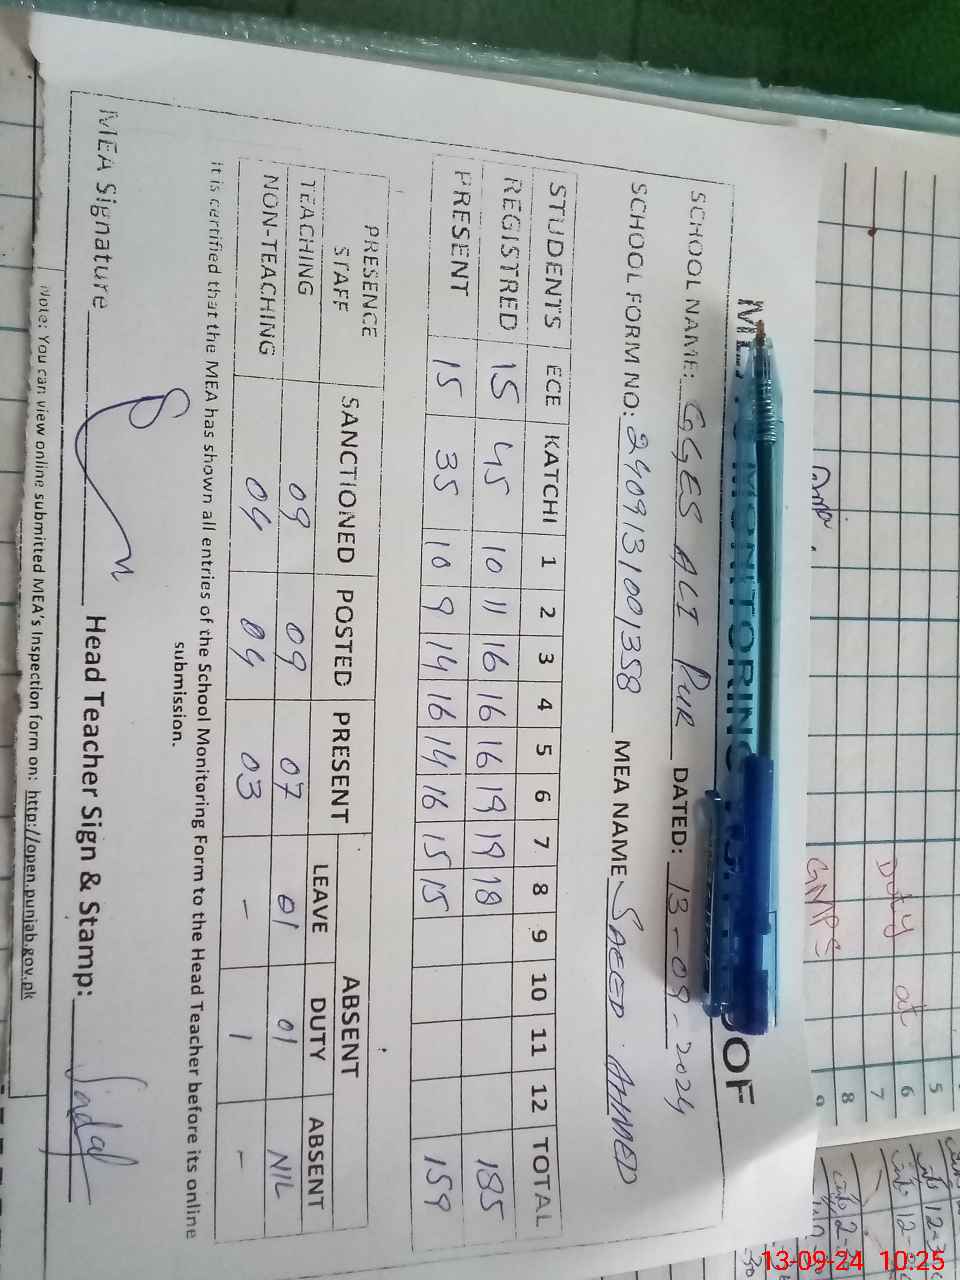 MONITORING OF
SCHOOL NAME: GGES ALI PUR DATED: 13-09-2024
SCHOOL FORM NO: 2409131001358 MEA NAME SAEED AHMED
STUDENTS ECE KATCHI 1 2 3 4 5 6 7 8 9 10 11 12 TOTAL
REGISTRED 15 45 10 11 16 16 16 19 19 18 185
PRESENT 15 35 10 9 14 16 14 16 15 15 159
PRESENCE STAFF SANCTIONED POSTED PRESENT ABSENT
LEAVE DUTY ABSENT
TEACHING 09 09 07 01 01 NIL
NON-TEACHING 04 04 03 - 1 -
It is certified that the MEA has shown all entries of the School Monitoring Form to the Head Teacher before its online
submission.
MEA Signature Head Teacher Sign & Stamp: Sadaf
Note: You can view online submitted MEA's Inspection form on: http://open.punjab.gov.pk
Duty at
GMPS
5
6
7
8
9
13-09-24 10:25